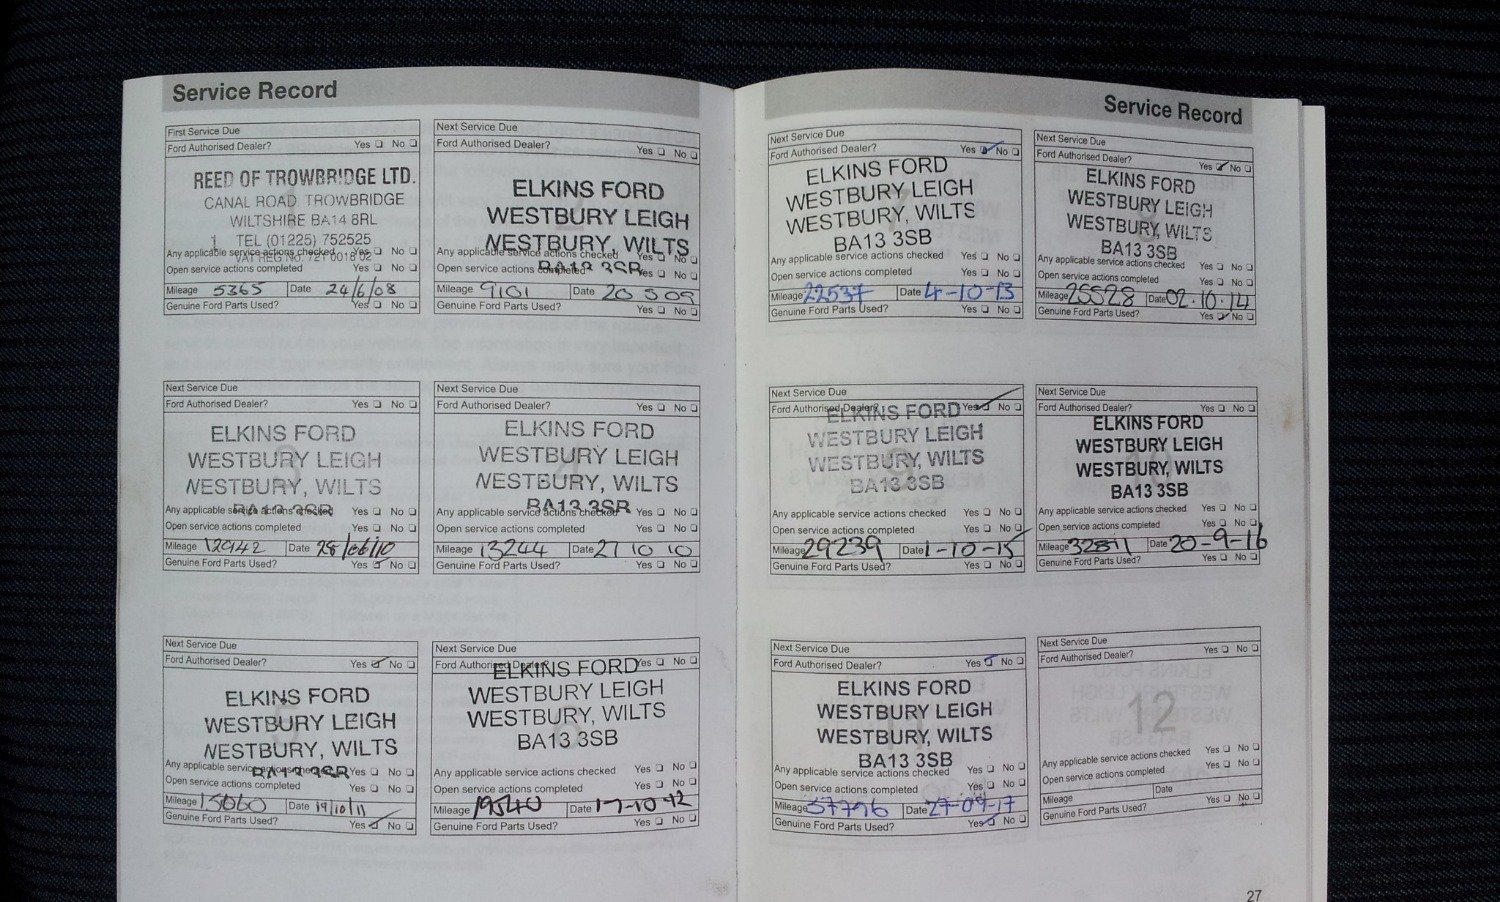 Service Record
First Service Due
Ford Authorised Dealer? Yes No
REED OF TROWBRIDGE LTD.
CANAL ROAD, TROWBRIDGE
WILTSHIRE BA14 8RL
1 TEL (01225) 752525
Any applicable service actions checked Yes No
VAT REG No. 721 0018 02
Open service actions completed Yes No
Mileage 5365 Date 24/6/08
Genuine Ford Parts Used? Yes No
Next Service Due
Ford Authorised Dealer? Yes No
ELKINS FORD
WESTBURY LEIGH
WESTBURY, WILTS
Any applicable service actions checked Yes No
BA13 3SB
Open service actions completed Yes No
Mileage 9101 Date 20 5 09
Genuine Ford Parts Used? Yes No
Next Service Due
Ford Authorised Dealer? Yes No
ELKINS FORD
WESTBURY LEIGH
WESTBURY, WILTS
BA13 3SB
Any applicable service actions checked Yes No
Open service actions completed Yes No
Mileage 12942 Date 28/06/10
Genuine Ford Parts Used? Yes No
Next Service Due
Ford Authorised Dealer? Yes No
4
ELKINS FORD
WESTBURY LEIGH
WESTBURY, WILTS
BA13 3SB
Any applicable service actions checked Yes No
Open service actions completed Yes No
Mileage 13244 Date 27 10 10
Genuine Ford Parts Used? Yes No
Next Service Due
Ford Authorised Dealer? Yes No
5
ELKINS FORD
WESTBURY LEIGH
WESTBURY, WILTS
BA13 3SB
Any applicable service actions checked Yes No
Open service actions completed Yes No
Mileage Date 19/10/11
Genuine Ford Parts Used? Yes No
Next Service Due
Ford Authorised Dealer? Yes No
ELKINS FORD
WESTBURY LEIGH
WESTBURY, WILTS
BA13 3SB
Any applicable service actions checked Yes No
Open service actions completed Yes No
Mileage 19540 Date 17-10-12
Genuine Ford Parts Used? Yes No
Service Record
Next Service Due
Ford Authorised Dealer? Yes No
ELKINS FORD
WESTBURY LEIGH
WESTBURY, WILTS
BA13 3SB
Any applicable service actions checked Yes No
Open service actions completed Yes No
Mileage 22537 Date 4-10-13
Genuine Ford Parts Used? Yes No
Next Service Due
Ford Authorised Dealer? Yes No
ELKINS FORD
WESTBURY LEIGH
WESTBURY, WILTS
BA13 3SB
Any applicable service actions checked Yes No
Open service actions completed Yes No
Mileage 25528 Date 02.10.14
Genuine Ford Parts Used? Yes No
Next Service Due
Ford Authorised Dealer? Yes No
9
ELKINS FORD
WESTBURY LEIGH
WESTBURY, WILTS
BA13 3SB
Any applicable service actions checked Yes No
Open service actions completed Yes No
Mileage 29239 Date 1-10-15
Genuine Ford Parts Used? Yes No
Next Service Due
Ford Authorised Dealer? Yes No
10
ELKINS FORD
WESTBURY LEIGH
WESTBURY, WILTS
BA13 3SB
Any applicable service actions checked Yes No
Open service actions completed Yes No
Mileage Date 20-9-16
Genuine Ford Parts Used? Yes No
Next Service Due
Ford Authorised Dealer? Yes No
11
ELKINS FORD
WESTBURY LEIGH
WESTBURY, WILTS
BA13 3SB
Any applicable service actions checked Yes No
Open service actions completed Yes No
Mileage 37796 Date 27-09-17
Genuine Ford Parts Used? Yes No
Next Service Due
Ford Authorised Dealer? Yes No
12
Any applicable service actions checked Yes No
Open service actions completed Yes No
Mileage Date
Genuine Ford Parts Used? Yes No
27